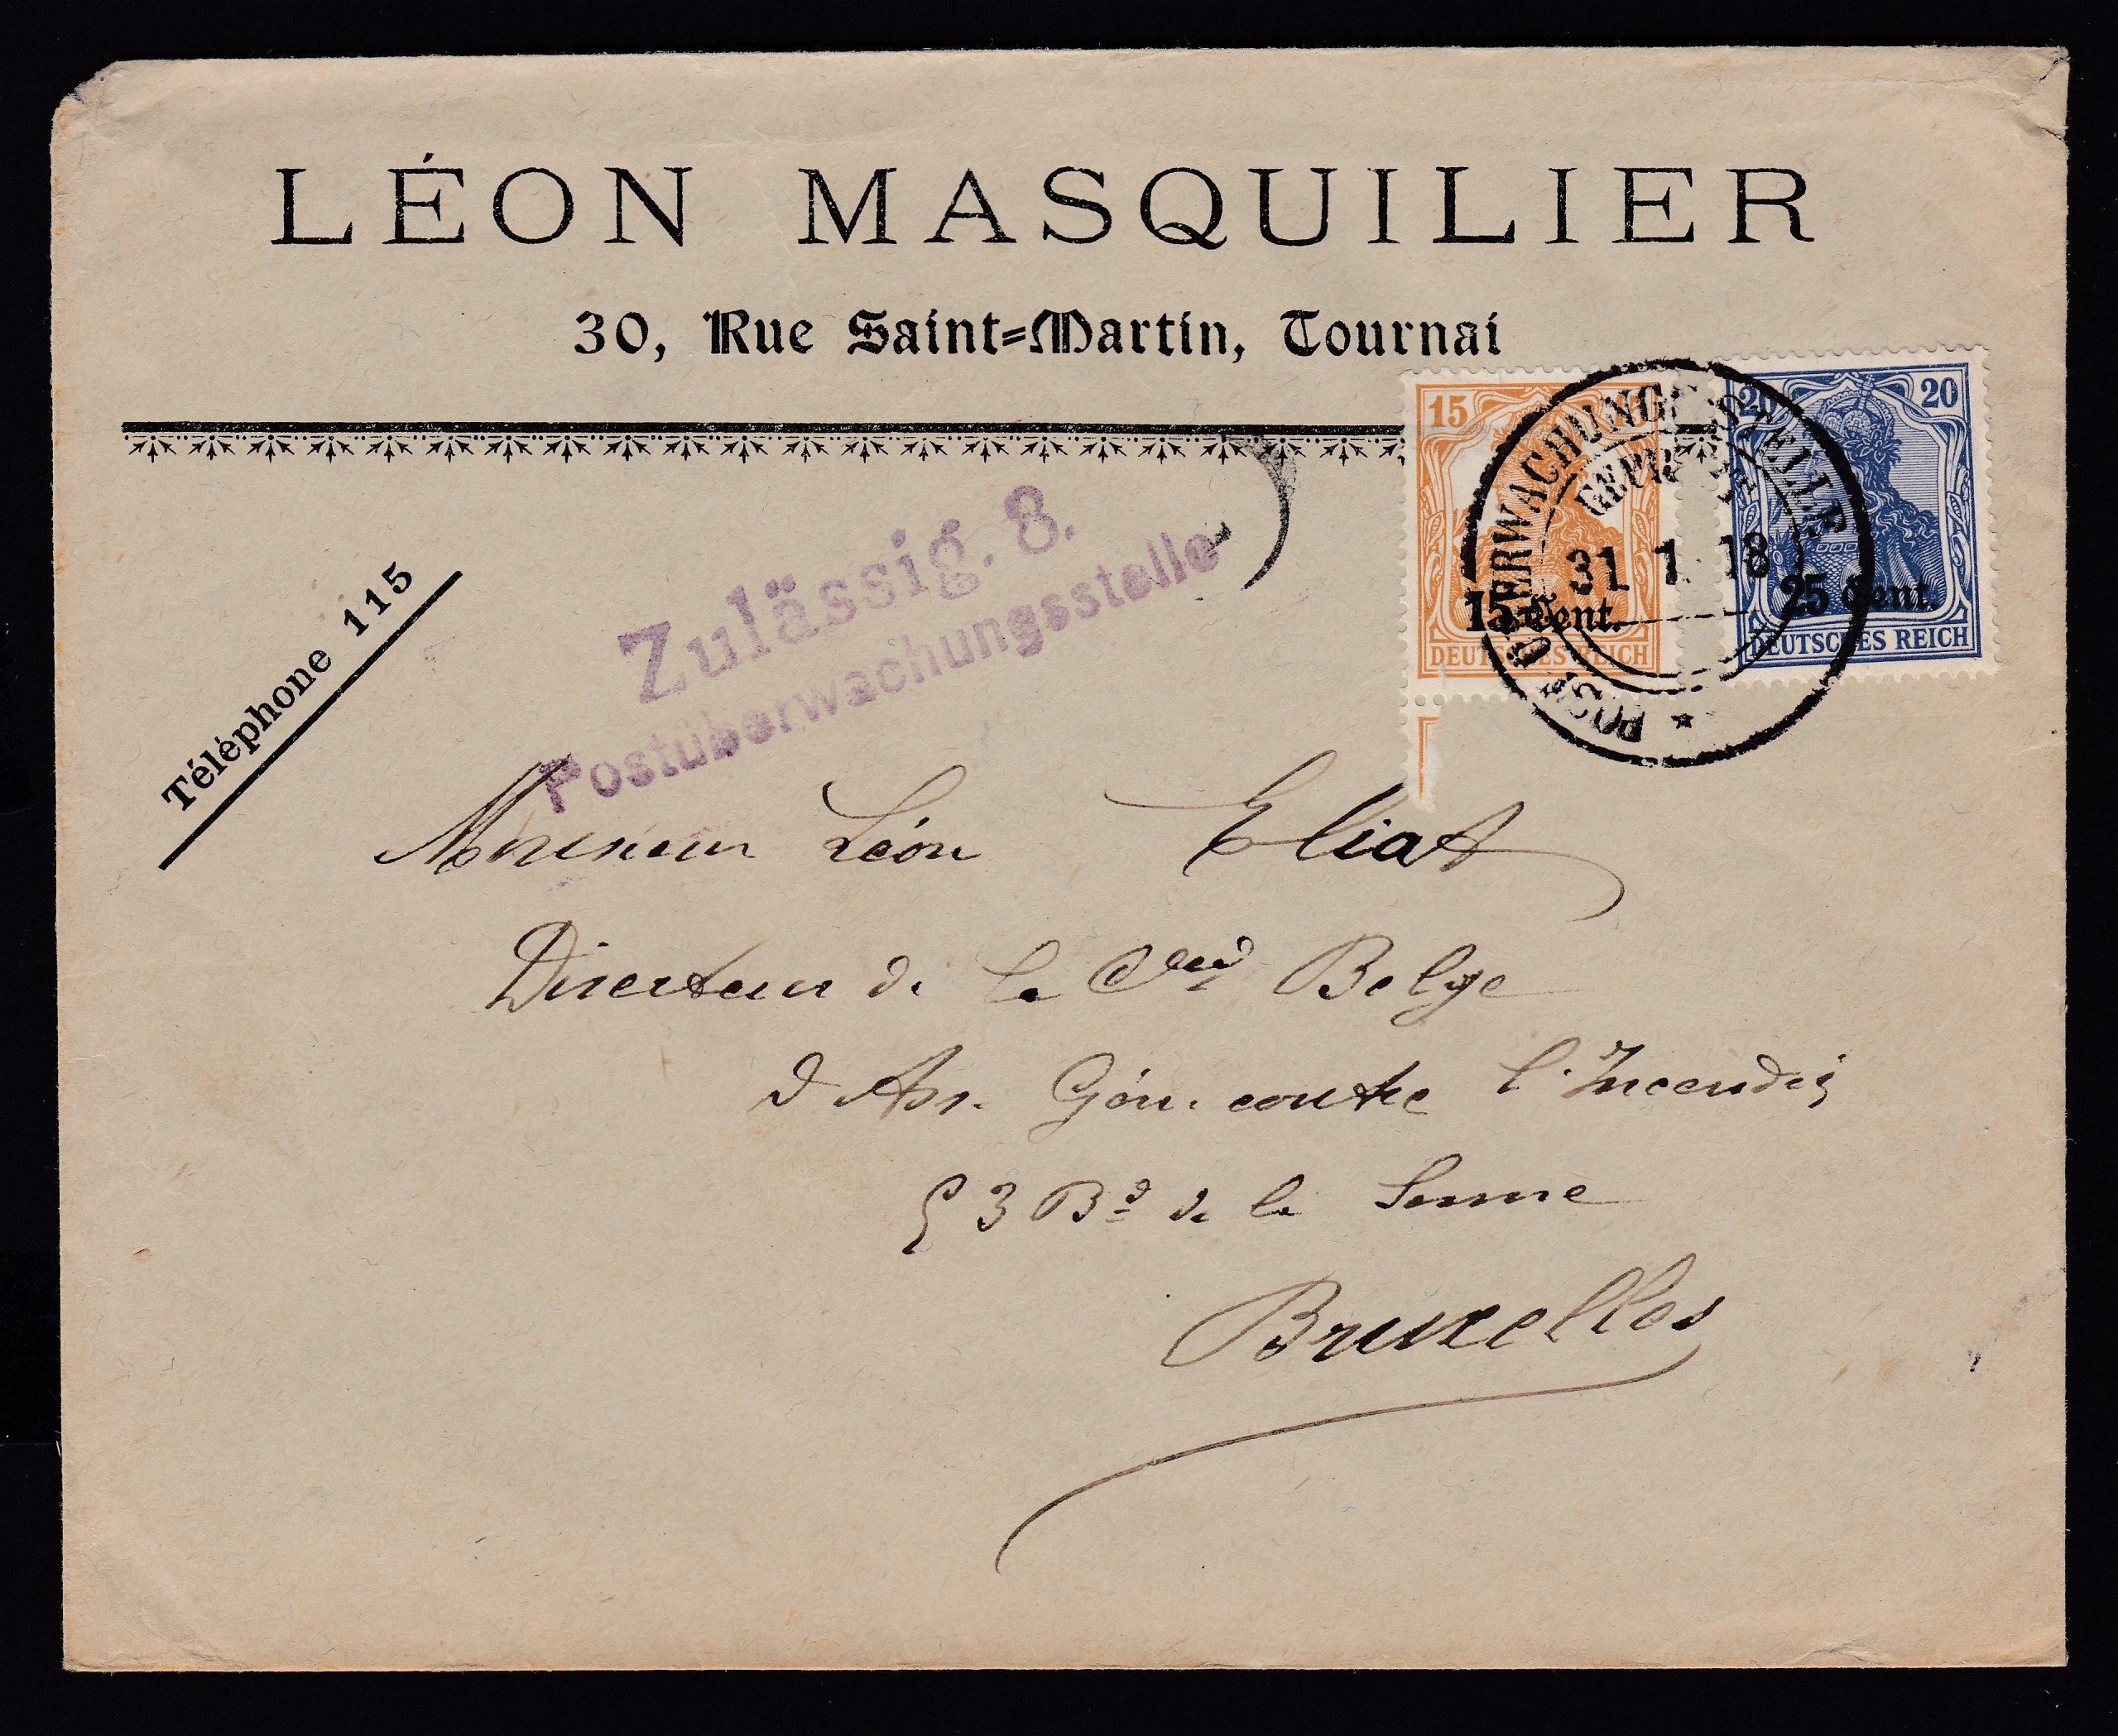 LÉON MASQUILIER
30, Rue Saint-Martin, Tournai
Téléphone 115
Zulässig. 8.
Postüberwachungsstelle
15
15 Cent.
DEUTSCHES REICH
20 20
25 Cent.
DEUTSCHES REICH
POSTÜBERWACHUNGSSTELLE
31 1. 18
Monsieur Léon Eliat
Directeur de la Cie Belge
d Ass. Gén. contre l'Incendie
53 Bd de la Senne
Bruxelles